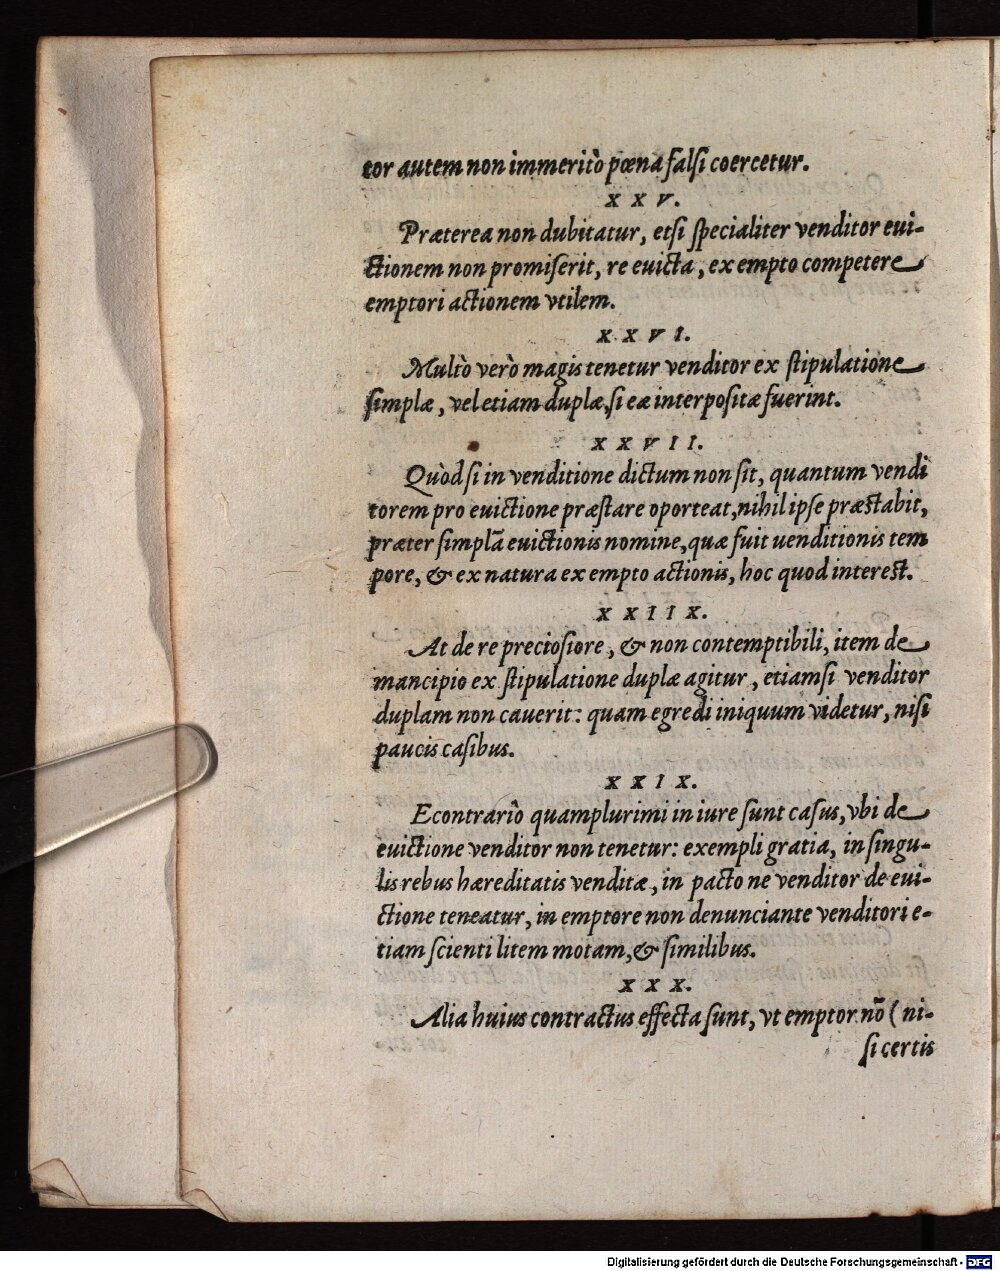 tor autem non immeritò pœna falsi coercetur.
XXV.
Præterea non dubitatur, etsi specialiter venditor evi-
ctionem non promiserit, re evicta, ex empto competere
emptori actionem vtilem.
XXVI.
Multò verò magis tenetur venditor ex stipulatione
simplæ, vel etiam duplæ, si eæ interpositæ fuerint.
XXVII.
Quòd si in venditione dictum non sit, quantum vendi
torem pro evictione præstare oporteat, nihil ipse præstabit,
præter simplā evictionis nomine, quæ fuit uenditionis tem
pore, & ex natura ex empto actionis, hoc quod interest.
XXIIX.
At de re preciosiore, & non contemptibili, item de
mancipio ex stipulatione duplæ agitur, etiamsi venditor
duplam non cauerit: quam egredi iniquum videtur, nisi
paucis casibus.
XXIX.
Econtrariò quamplurimi in iure sunt casus, vbi de
euictione venditor non tenetur: exempli gratia, in singu-
lis rebus hæreditatis venditæ, in pacto ne venditor de evi-
ctione teneatur, in emptore non denunciante venditori e-
tiam scienti litem motam, & similibus.
XXX.
Alia huius contractus effecta sunt, vt emptor nō (ni-
si certis
Digitalisierung gefördert durch die Deutsche Forschungsgemeinschaft - DFG